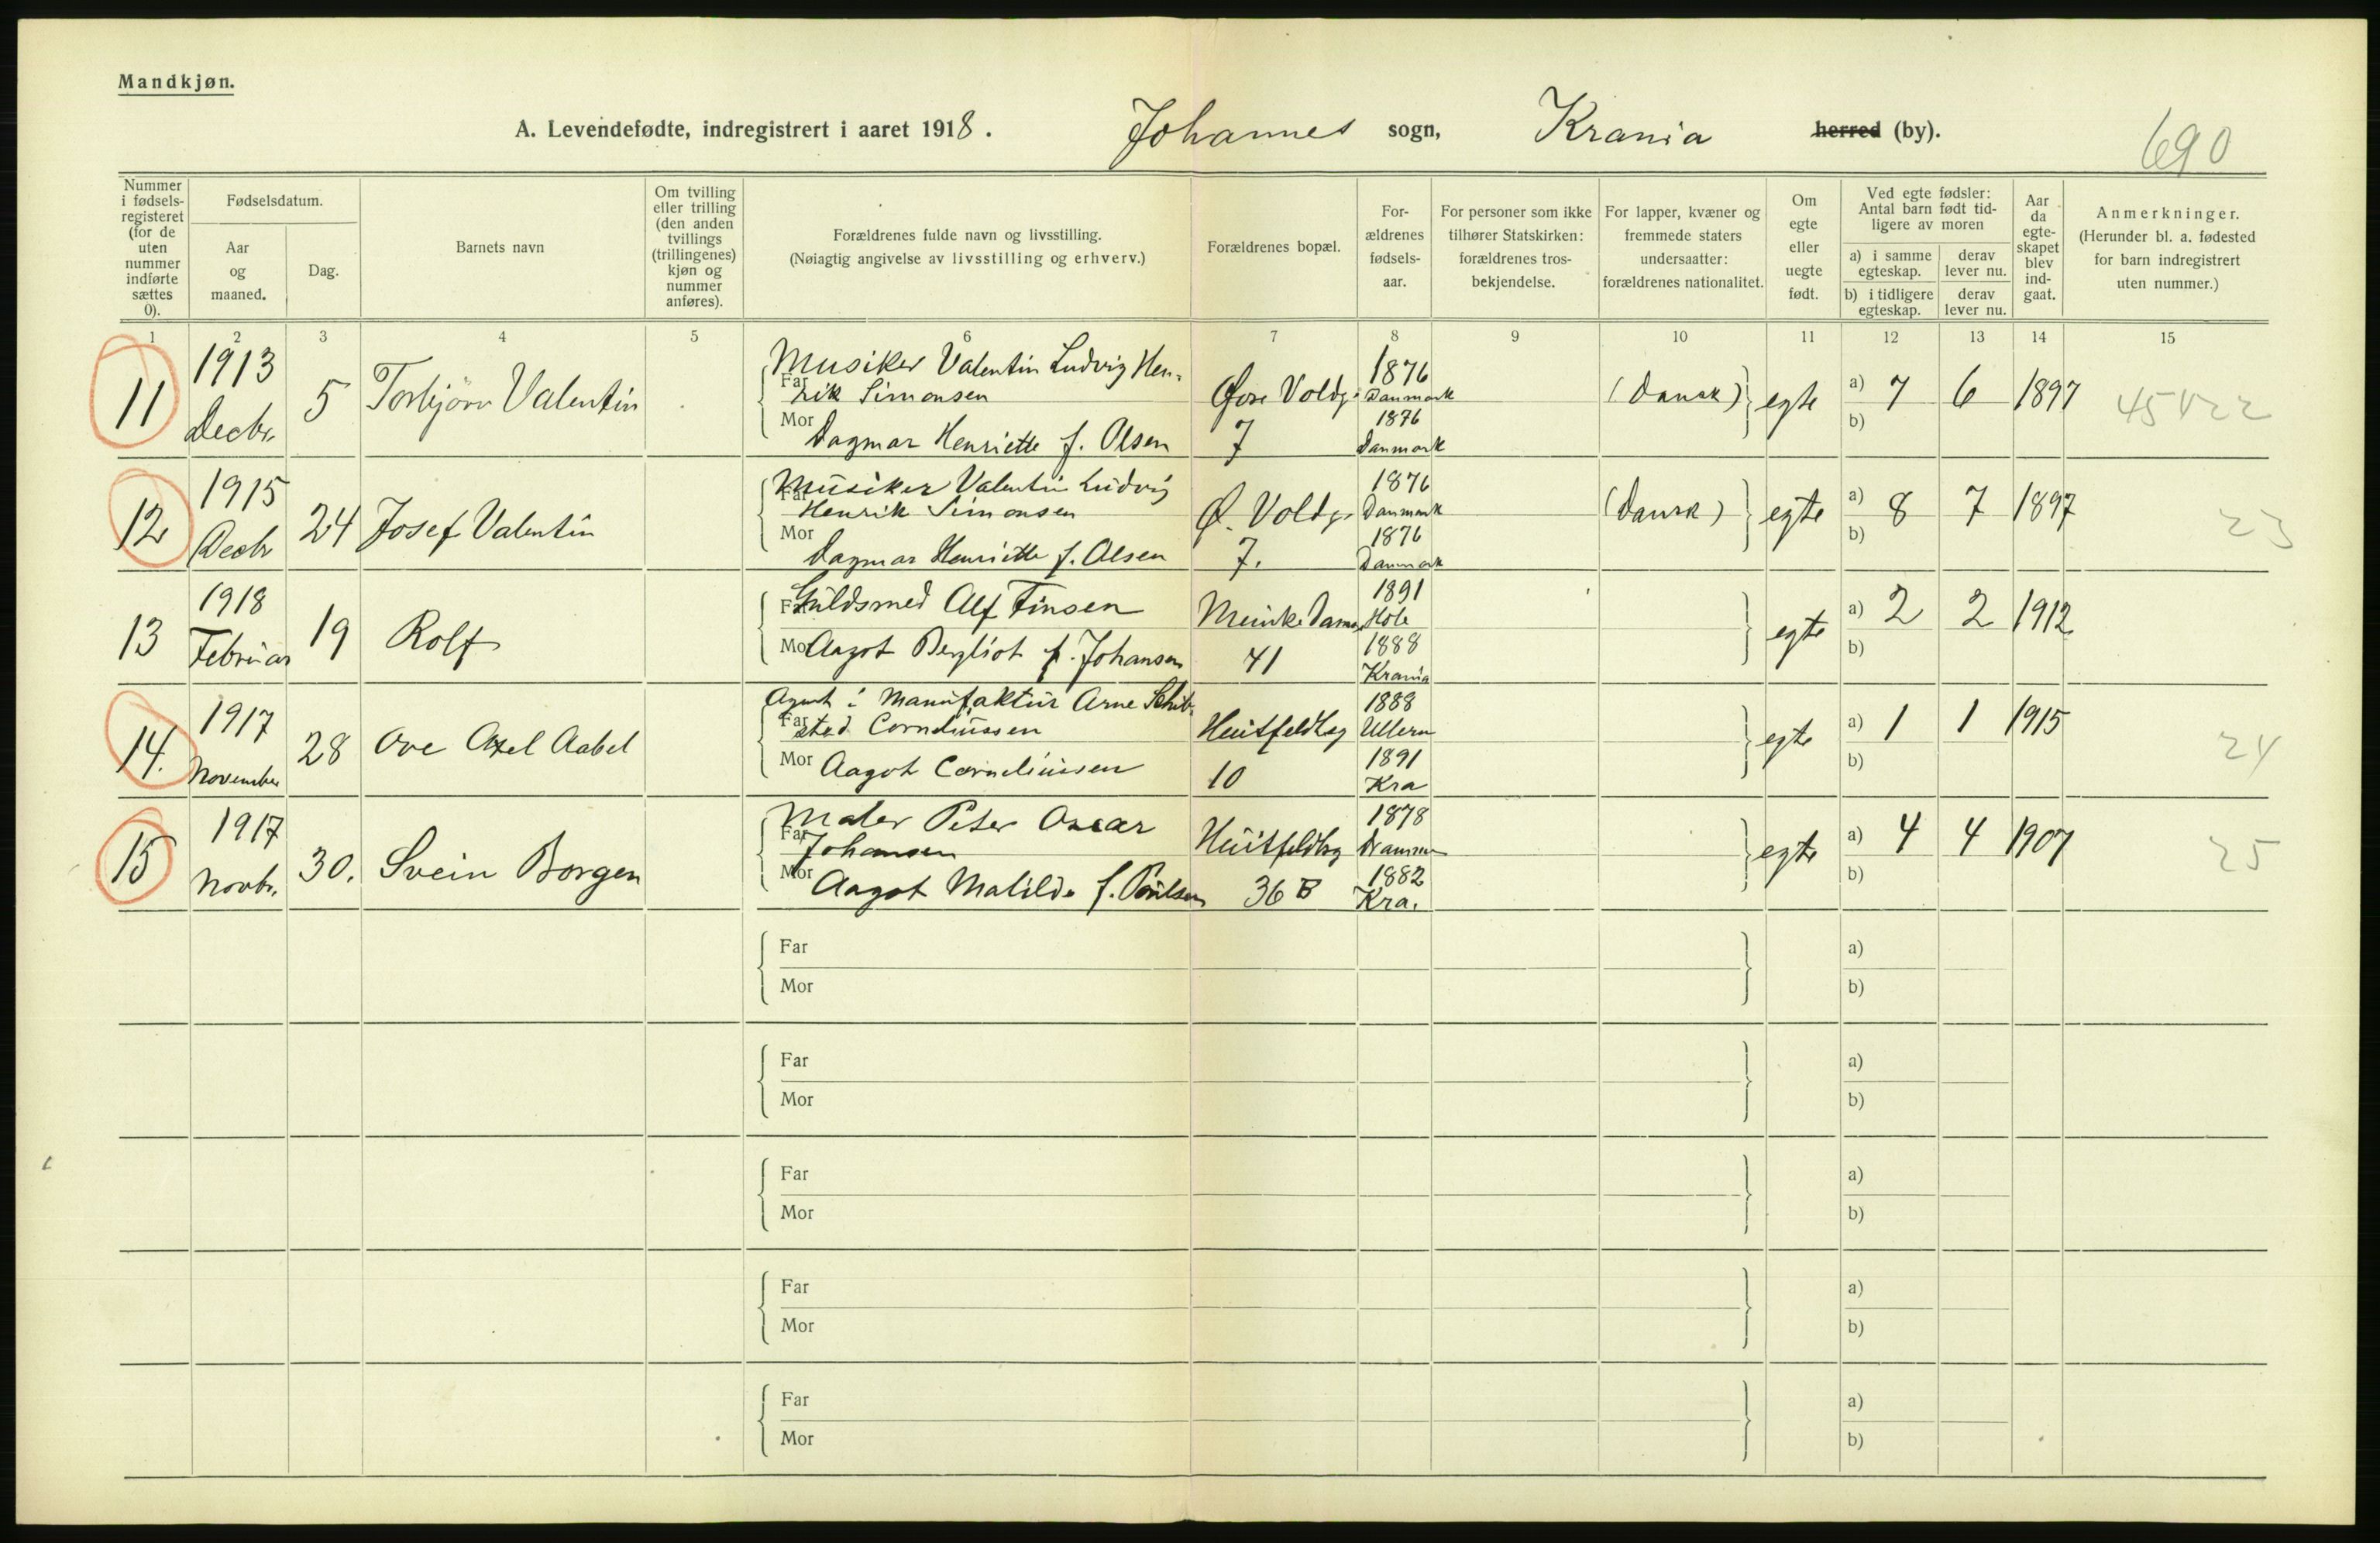 Mandkjøn.
A. Levendefødte, indregistrert i aaret 1918. Johannes sogn, Krania herred (by).
690
Nummer i fødsels-registeret (for de uten nummer indførte sættes 0).
Fødselsdatum.
Aar og maaned.
Dag.
Barnets navn
Om tvilling eller trilling (den anden tvillings (trillingenes) kjøn og nummer anføres).
Forældrenes fulde navn og livsstilling.
(Nøiagtig angivelse av livsstilling og erhverv.)
Forældrenes bopæl.
For-ældrenes fødsels-aar.
For personer som ikke tilhører Statskirken: forældrenes tros-bekjendelse.
For lapper, kvæner og fremmede staters undersaatter: forældrenes nationalitet.
Om egte eller uegte født.
Ved egte fødsler: Antal barn født tid-ligere av moren
a) i samme egteskap.
derav lever nu.
b) i tidligere egteskap.
derav lever nu.
Aar da egte-skapet blev ind-gaat.
Anmerkninger.
(Herunder bl. a. fødested for barn indregistrert uten nummer.)
1 2 3 4 5 6 7 8 9 10 11 12 13 14 15
11 1913 Decbr. 5 Torbjörn Valentin
Far Musiker Valentin Ludvig Hen-
rik Simonsen
Mor Dagmar Henriette f. Olsen
Øvre Voldg. 7
1876 Danmark
1876 Danmark
(Dansk) egte a) 7 6 1897
b)
45422
12 1915 Decbr 24 Josef Valentin
Far Musiker Valentin Ludvig
Henrik Simonsen
Mor Dagmar Henriette f. Olsen
Ø. Voldg. 7.
1876 Danmark
1876 Danmark
(Dansk) egte a) 8 7 1897
b)
23
13 1918 Februar 19 Rolf
Far Guldsmed Alf Finsen
Mor Aagot Bergliot f. Johansen
Munkedamsv. 41
1891 Hole
1888 Krania
egte a) 2 2 1912
b)
14. 1917 November 28 Ove Axel Aabel
Far Agent i Manufaktur Arne Schib-
sted Corneliussen
Mor Aagot Corneliussen
Huitfeldtsg 10
1888 Ullern
1891 Kra
egte a) 1 1 1915
b)
24
15 1917 Novbr. 30. Svein Borgen
Far Maler Peter Oscar
Johansen
Mor Aagot Matilde f. Poulsen
Huitfeldtsg 36 B
1878 Drammen
1882 Kra.
egte a) 4 4 1907
b)
25
Far a)
Mor b)
Far a)
Mor b)
Far a)
Mor b)
Far a)
Mor b)
Far a)
Mor b)